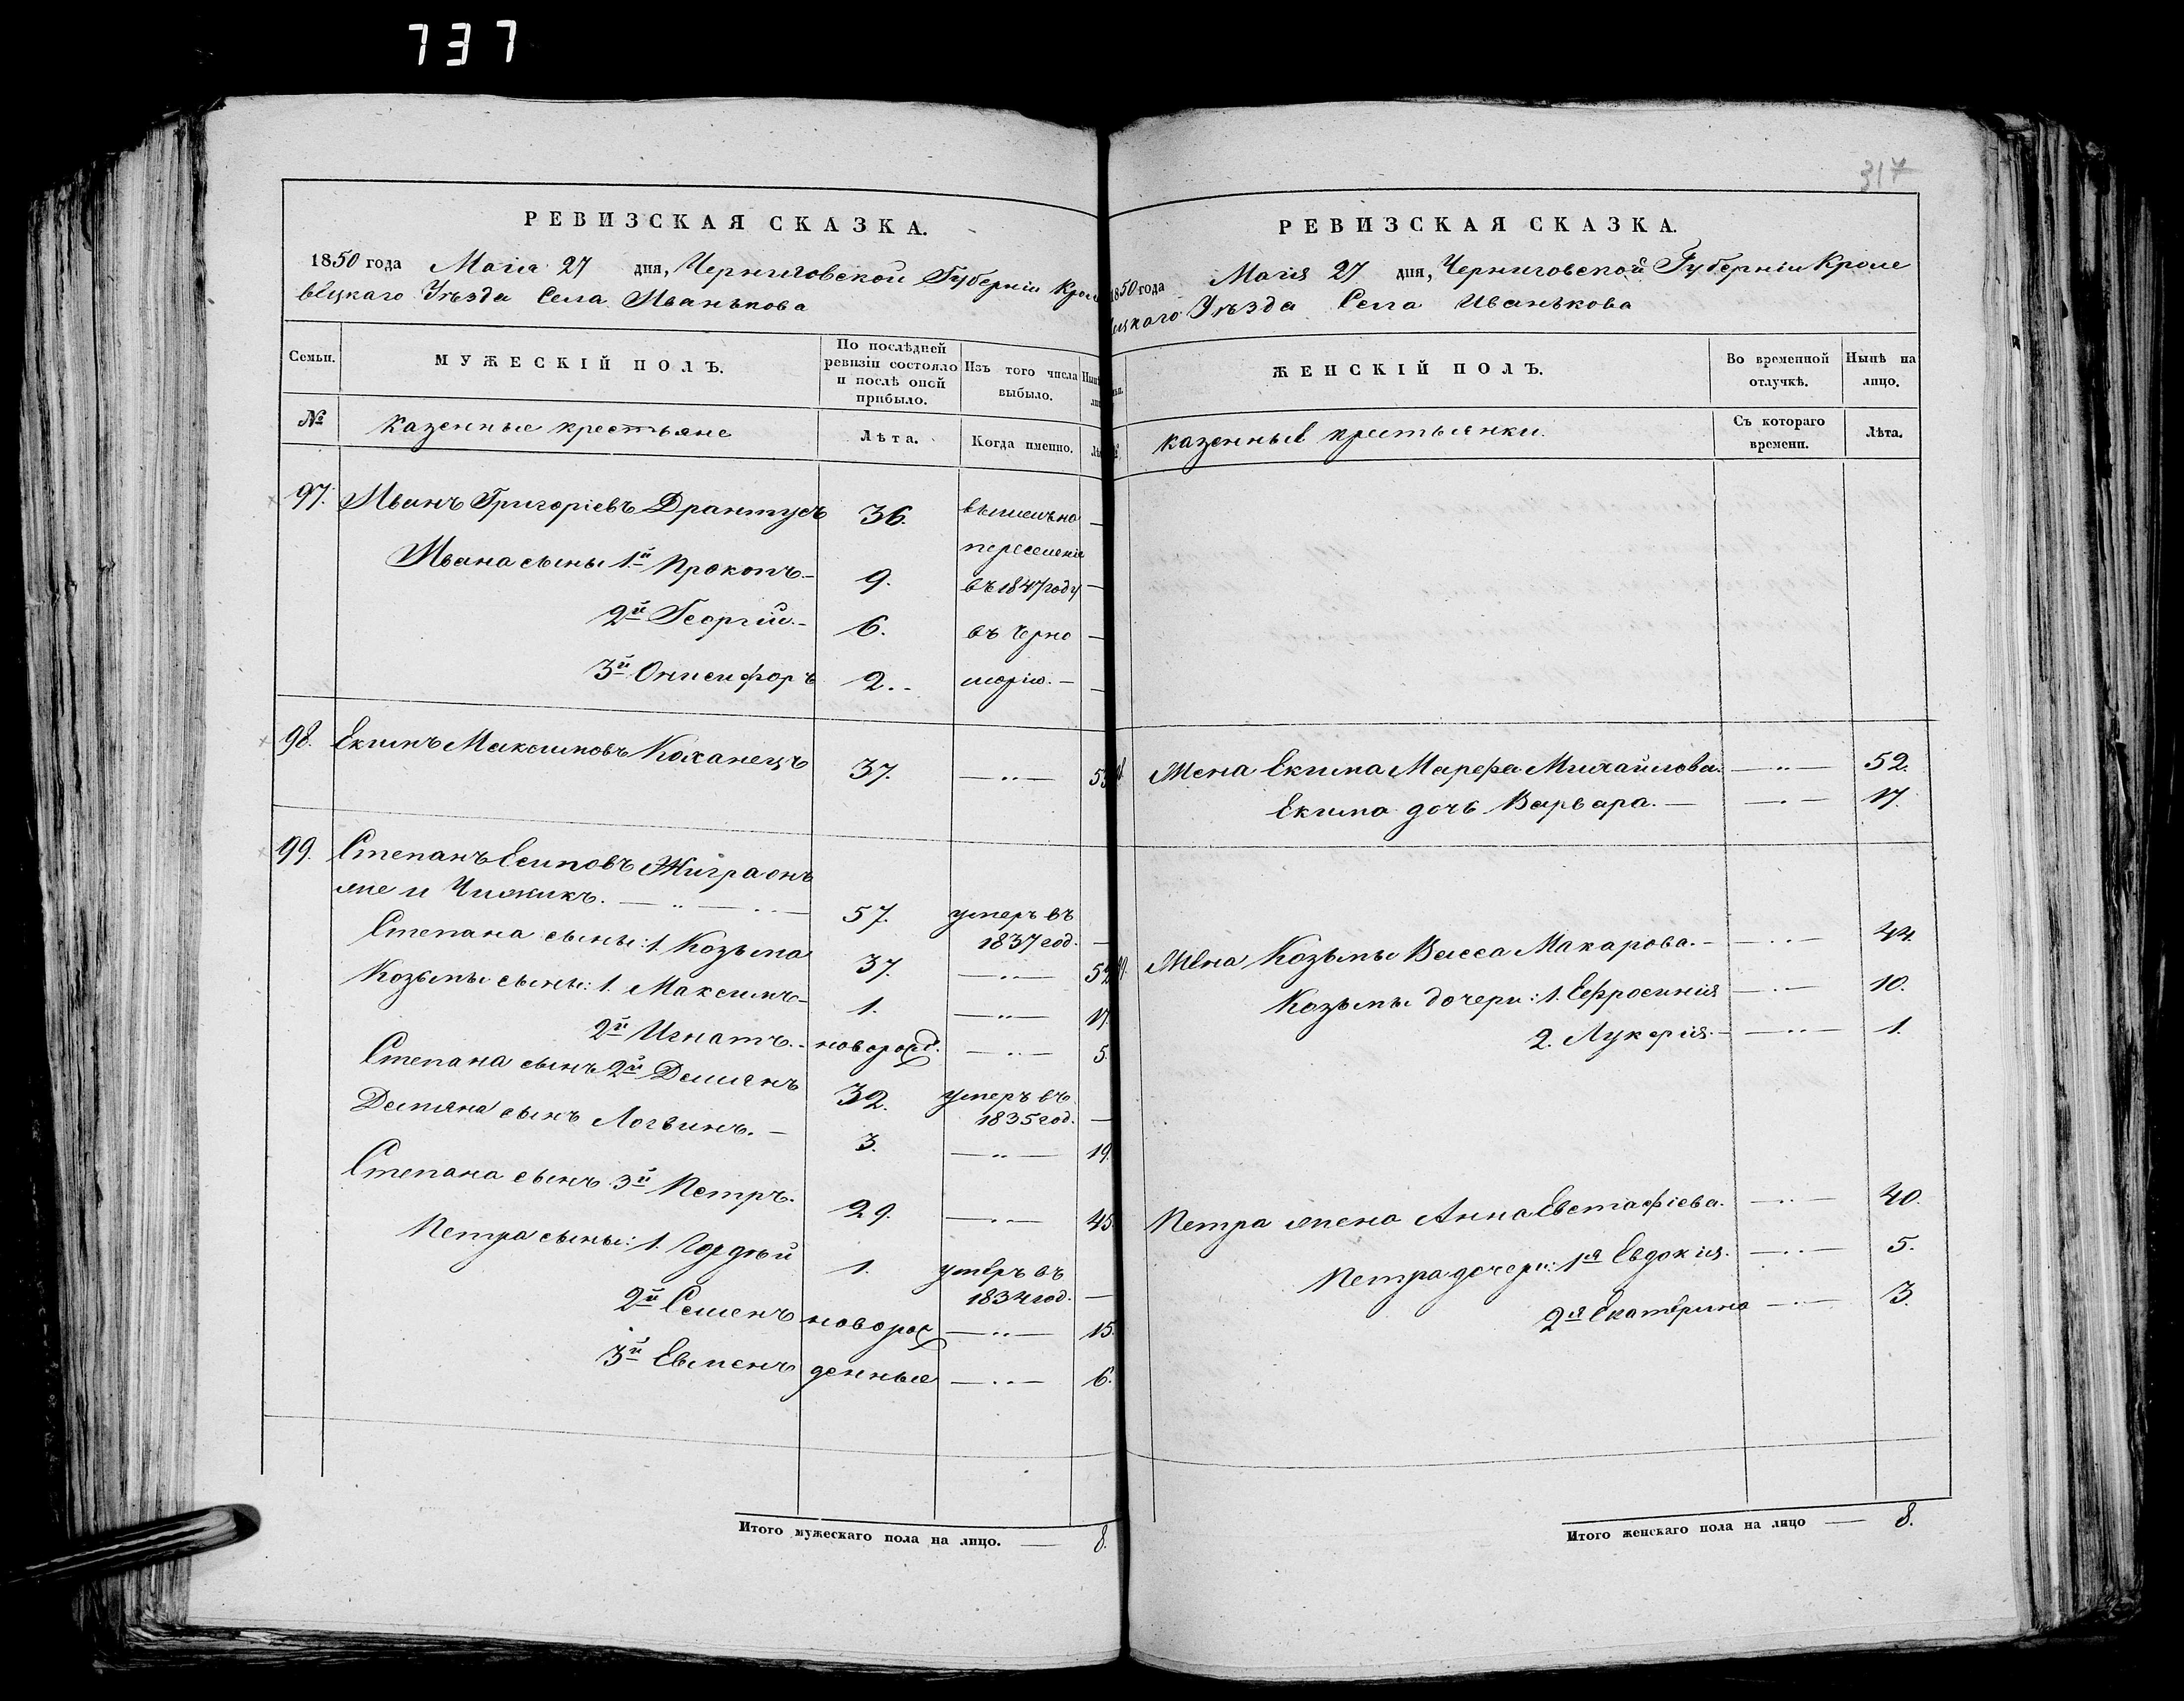 737
РЕВИЗСКАЯ СКАЗКА.
1850 года Маія 27 дня, Черниговской Губерніи Кроле
вецкаго Уѣзда Села Иванькова
Семьи.
МУЖЕСКІЙ ПОЛЪ.
По послѣдней ревизіи состояло и послѣ оной прибыло.
Изъ того числа выбыло.
№
казенные крестьяне
Лѣта.
Когда именно.
97. Иванъ Григоріевъ Драптусъ 36. вышелъ на —
переселеніе
Ивана сыны 1й Прокопъ 9. въ 1847 году —
2й Георгій 6. въ Черно —
3й Онисифоръ 2. морію. —
98. Екимъ Максимовъ Коханецъ 37. —
99. Степанъ Есиповъ Жигра онъ
же и Чижикъ. 57. умеръ въ
1837 год. —
Степана сыны: 1. Козьма 37. —
Козьмы сыны: 1. Максимъ 1. — 17.
2й Игнатъ. новорожд. — 5.
Степана сынъ 2й Демянъ 32. умеръ въ
1835 год. —
Демяна сынъ Логвинъ. 3. — 19.
Степана сынъ 3й Петръ. 29. — 45
Петра сыны: 1. Гордѣй 1. умеръ въ
1834 год. —
2й Семенъ новорож — 15.
3й Евменъ денные — 6.
Итого мужескаго пола на лицо. — 8.
317
РЕВИЗСКАЯ СКАЗКА.
1850 года Маія 27 дня, Черниговской Губерніи Кроле
вецкаго Уѣзда Села Иванькова
ЖЕНСКІЙ ПОЛЪ.
Во временной отлучкѣ.
Нынѣ на лицо.
казенные крестьянки.
Съ котораго времени.
Лѣта.
Жена Екима Марефа Михайлова. — 52.
Екима дочь Варвара. — 17.
Жена Козьмы Васса Макарова. — 44.
Козьмы дочери: 1. Ефросинія — 10.
2. Лукерія. — 1.
Петра жена Анна Евстафіева. — 40.
Петра дочери: 1я Евдокія. — 5.
2я Екатерина — 3.
Итого женскаго пола на лицо — 8.